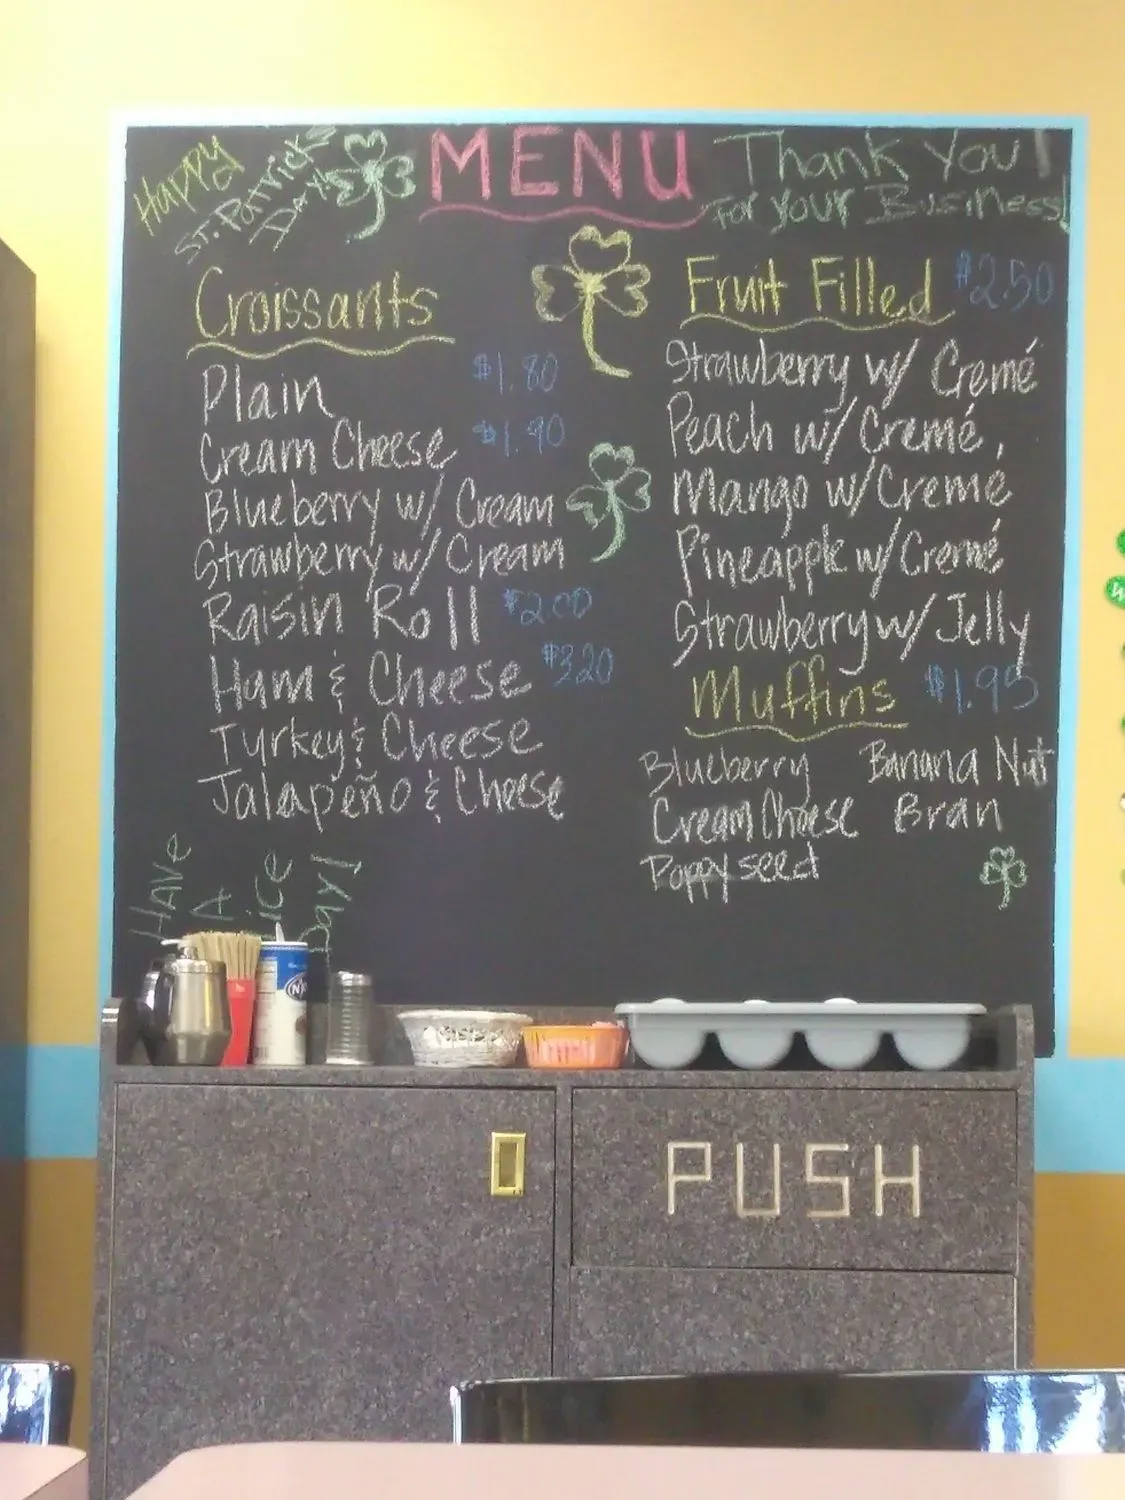 Happy
St. Patrick's
Day!
MENU
Thank You!
For your Business!
Croissants
Plain $1.80
Cream Cheese $1.90
Blueberry w/ Cream
Strawberry w/ Cream
Raisin Roll $2.00
Ham & Cheese $3.20
Turkey & Cheese
Jalapeño & Cheese
Fruit Filled $2.50
Strawberry w/ Cremé
Peach w/ Cremé,
Mango w/ Cremé
Pineapple w/ Cremé
Strawberry w/ Jelly
Muffins $1.95
Blueberry Banana Nut
Cream Cheese Bran
Poppy seed
HAVE
A
NICE
DAY!
PUSH